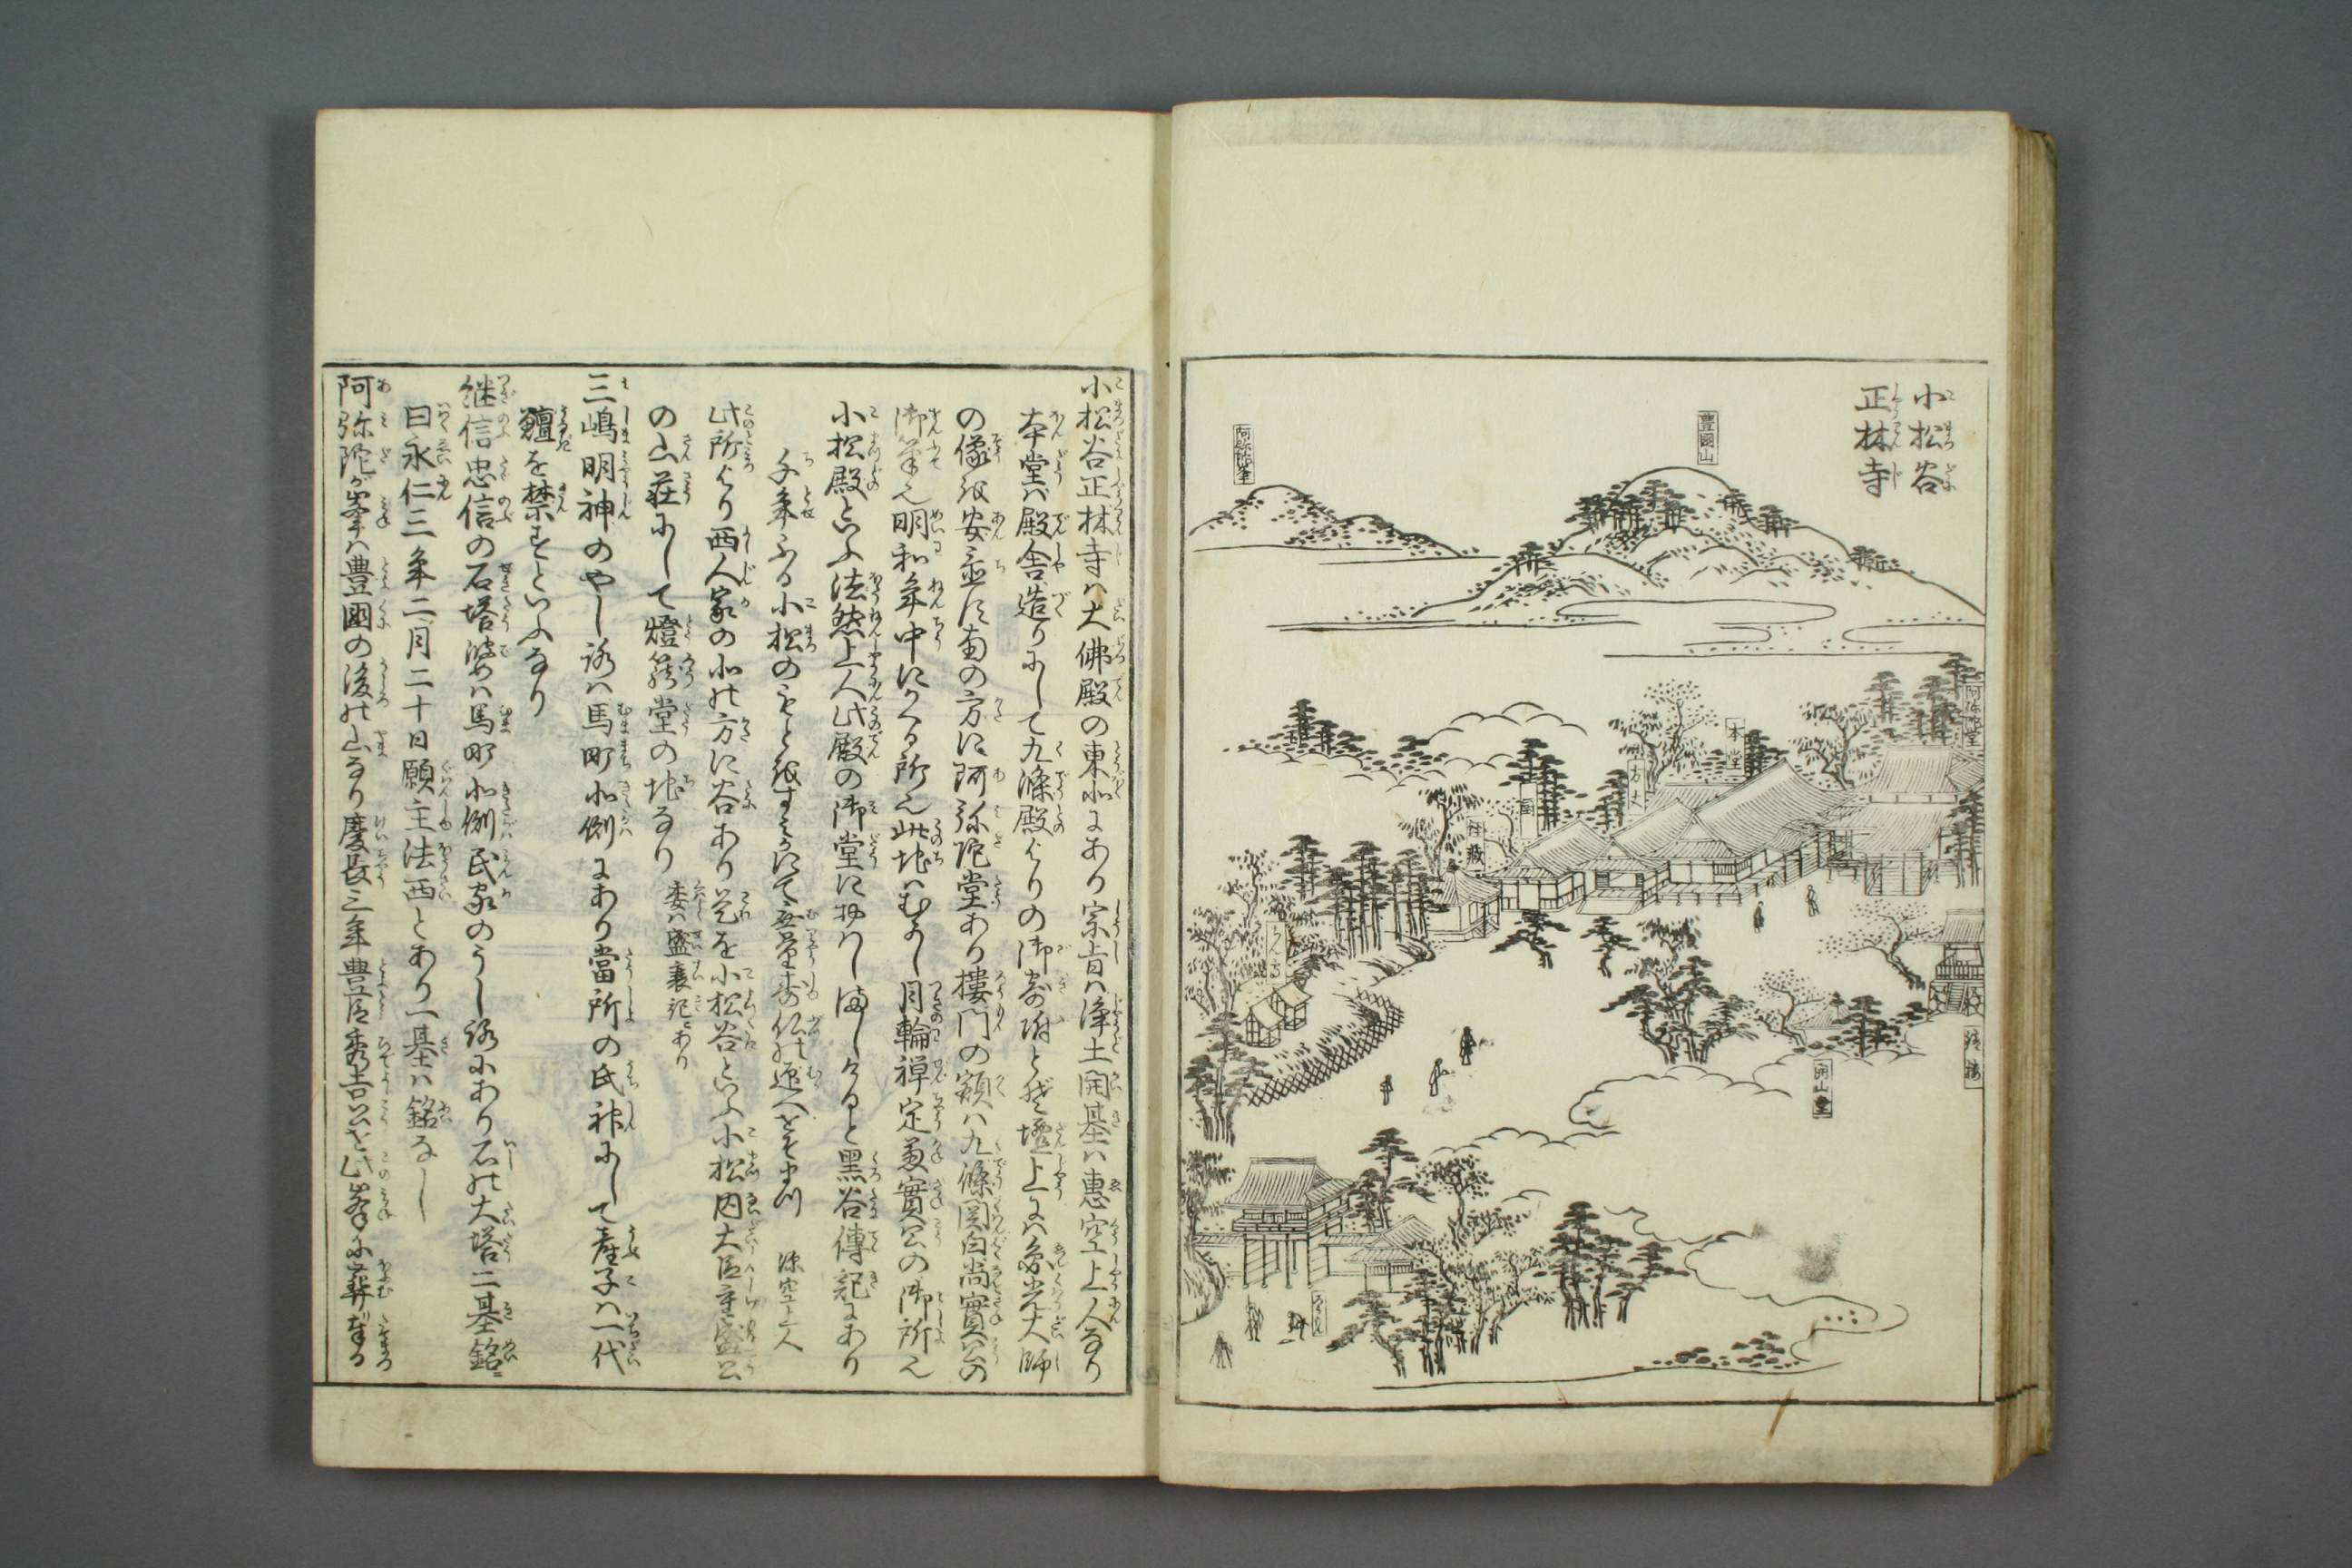 小松谷
正林寺
豊國山
阿弥陀峯
阿弥陀堂
本堂
方丈
経蔵
鐘楼
開山堂
小松谷正林寺ハ大佛殿の東北にあり宗旨ハ浄土開基ハ惠空上人なり
本堂ハ殿舎造りにして九條殿よりの御寄附とぞ壇上にハ圓光大師
の像を安置す南の方に阿弥陀堂あり樓門の額ハ九條関白尚實公の
御筆也明和年中にかくる所也此地ハむかし月輪禅定兼實公の御所也
小松殿といふ法然上人此殿の御堂におハしましけると黒谷傳記にあり
千年ふる小松のもとをすみかにて無量寿仏の迎へをぞまつ 源空上人
此所より西人家の北の方に谷あり是を小松谷といふ小松内大臣重盛公
の山荘にして燈籠堂の地なり 委ハ盛衰記にあり
三嶋明神のやしろハ馬町北側にあり當所の氏神にして産子ハ一代
鱣を禁ずといふなり
継信忠信の石塔婆ハ馬町北側民家のうしろにあり石の大塔二基銘ニ
曰永仁三年二月二十日願主法西とあり一基ハ銘なし
阿弥陀が峯ハ豊國の後の山なり慶長三年豊臣秀吉公を此峯に葬奉る